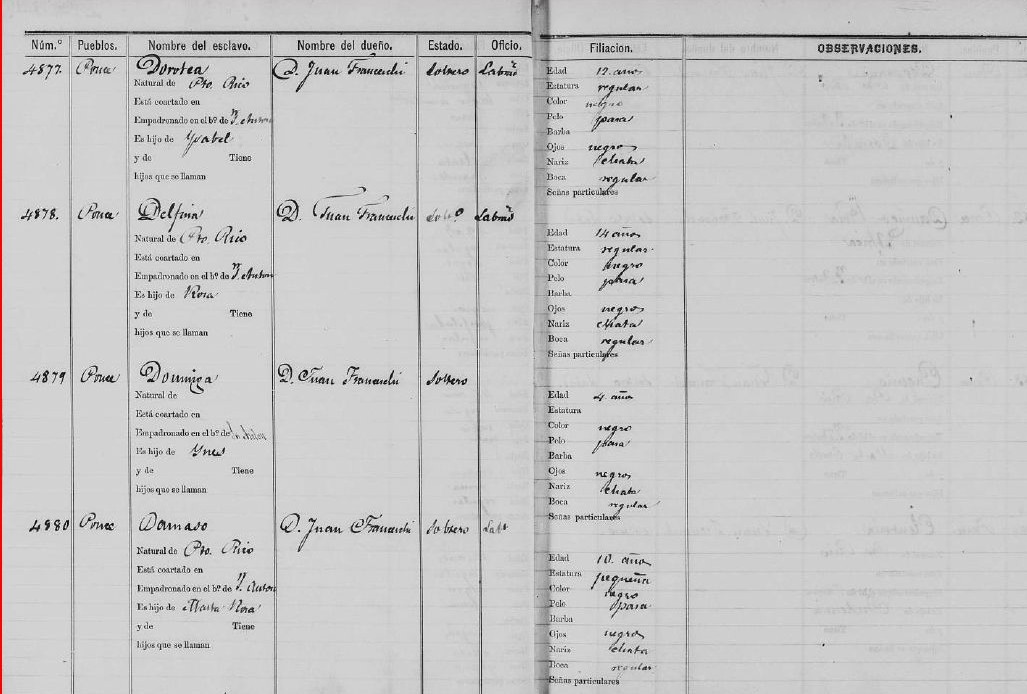 Núm.º Pueblos. Nombre del esclavo. Nombre del dueño. Estado. Oficio. Filiacion. OBSERVACIONES.
4877. Ponce Dorotea D. Juan Franceschi Soltero Labrº
Natural de Pto. Rico
Está coartado en
Empadronado en el bº de S. Anton
Es hijo de Ysabel
y de Tiene
hijos que se llaman
Edad 12 años
Estatura regular
Color negro
Pelo pasa
Barba
Ojos negros
Nariz chata
Boca regular
Señas particulares
4878. Ponce Delfina D. Juan Franceschi Solº Labrº
Natural de Pto. Rico
Está coartado en
Empadronado en el bº de S. Anton
Es hijo de Rosa
y de Tiene
hijos que se llaman
Edad 14 años
Estatura regular
Color negro
Pelo pasa
Barba
Ojos negros
Nariz chata
Boca regular
Señas particulares
4879 Ponce Dominga D. Juan Franceschi Soltero
Natural de
Está coartado en
Empadronado en el bº de Sn Anton
Es hijo de Ynes
y de Tiene
hijos que se llaman
Edad 4 años
Estatura
Color negro
Pelo pasa
Barba
Ojos negros
Nariz chata
Boca regular
Señas particulares
4880 Ponce Damaso D. Juan Franceschi Soltero Labº
Natural de Pto. Rico
Está coartado en
Empadronado en el bº de S. Anton
Es hijo de Maria Rosa
y de Tiene
hijos que se llaman
Edad 10 años
Estatura pequeña
Color negro
Pelo pasa
Barba
Ojos negros
Nariz chata
Boca regular
Señas particulares